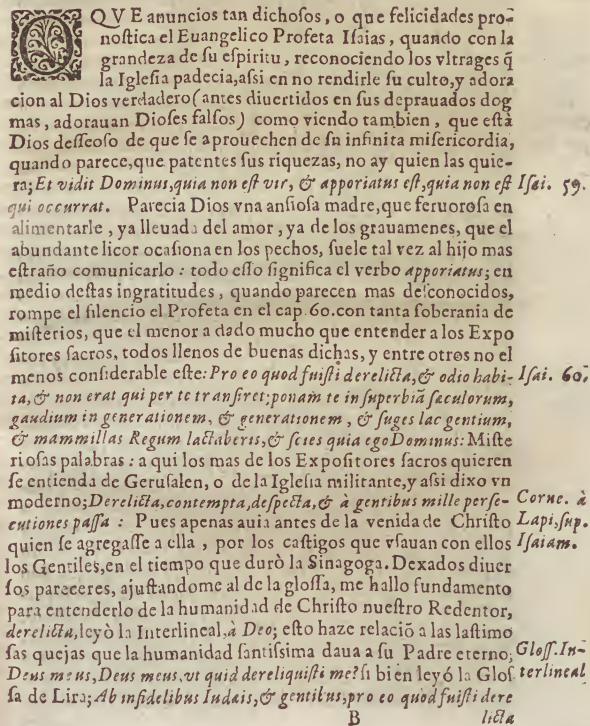 QVE anuncios tan dichoſos, o que felicidades pro-
noſtica el Euangelico Profeta Iſaias, quando con la
grandeza de ſu eſpiritu, reconociendo los vltrages q̃
la Igleſia padecia, aſsi en no rendirle ſu culto, y adora
cion al Dios verdadero (antes diuertidos en ſus deprauados dog
mas, adorauan Dioſes falſos) como viendo tambien, que eſtà
Dios deſſeoſo de que ſe aprouechen de ſu infinita miſericordia,
quando parece, que patentes ſus riquezas, no ay quien las quie-
ra; Et vidit Dominus, quia non eſt vir, & apporiatus eſt, quia non eſt Iſai. 59.
qui occurrat. Parecia Dios vna anſioſa madre, que feruoroſa en
alimentarle, ya lleuada del amor, ya de los grauamenes, que el
abundante licor ocaſiona en los pechos, ſuele tal vez al hijo mas
eſtraño comunicarlo: todo eſſo ſignifica el verbo apporiatus; en
medio deſtas ingratitudes, quando parecen mas deſconocidos,
rompe el ſilencio el Profeta en el cap. 60. con tanta ſoberania de
miſterios, que el menor a dado mucho que entender a los Expo
ſitores ſacros, todos llenos de buenas dichas, y entre otros no el
menos conſiderable eſte: Pro eo quod fuiſti derelicta, & odio habi- Iſai. 60.
ta, & non erat qui per te tranſiret; ponam te in ſuperbiã ſæculorum,
gaudium in generationem, & generationem, & ſuges lac gentium,
& mammillas Regum lactaberis, & ſcies quia ego Dominus: Miſte
rioſas palabras: a qui los mas de los Expoſitores ſacros quieren
ſe entienda de Geruſalen, o de la Igleſia militante, y aſsi dixo vn
moderno; Derelicta, contempta, deſpecta, & à gentibus mille perſe- Corne. à
cutiones paſſa: Pues apenas auia antes de la venida de Chriſto Lapi, ſup.
quien ſe agregaſſe a ella, por los caſtigos que vſauan con ellos Iſaiam.
los Gentiles, en el tiempo que durò la Sinagoga. Dexados diuer
ſos pareceres, ajuſtandome al de la gloſſa, me hallo fundamento
para entenderlo de la humanidad de Chriſto nueſtro Redentor,
derelicta, leyò la Interlineal, à Deo; eſto haze relaciõ a las laſtimo
ſas quejas que la humanidad ſantiſsima daua a ſu Padre eterno; Gloſſ. In-
Deus meus, Deus meus, vt quid dereliquiſti me? ſi bien leyó la Gloſ terlineal
ſa de Lira; Ab infidelibus Iudæis, & gentilus, pro eo quod fuiſti dere
B licta